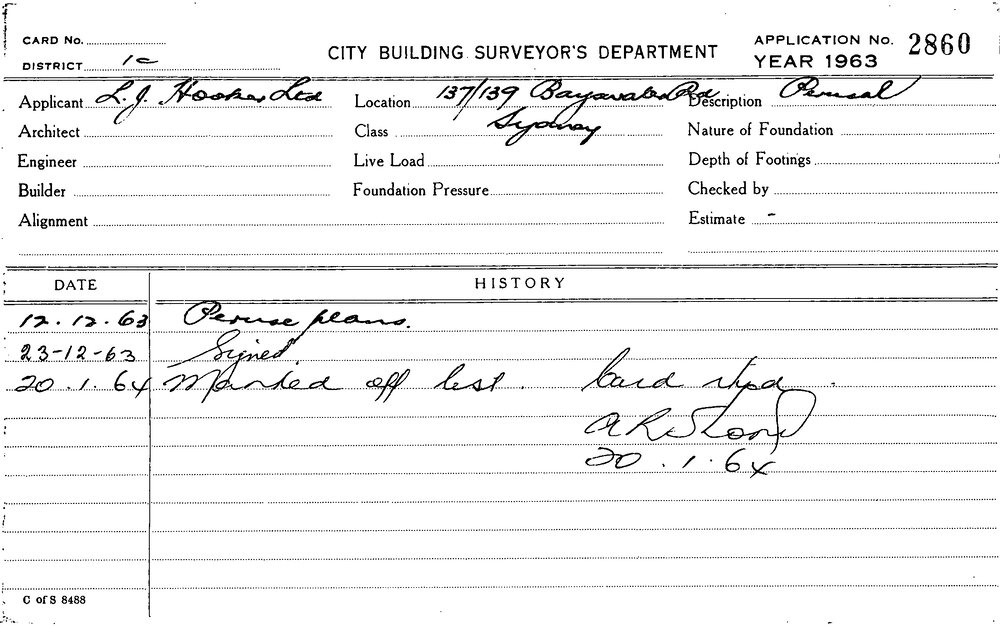 CARD No.
DISTRICT 1c
CITY BUILDING SURVEYOR'S DEPARTMENT
APPLICATION No. 2860
YEAR 1963
Applicant L.J. Hooker Ltd
Location 137/139 Bayswater Rd
Description Perusal
Architect
Class Sydney
Nature of Foundation
Engineer
Live Load
Depth of Footings
Builder
Foundation Pressure
Checked by
Alignment
Estimate -
DATE
HISTORY
12.12.63 Peruse plans.
23-12-63 Signed
20.1.64 Marked off list. Card
20.1.64
C of S 8488